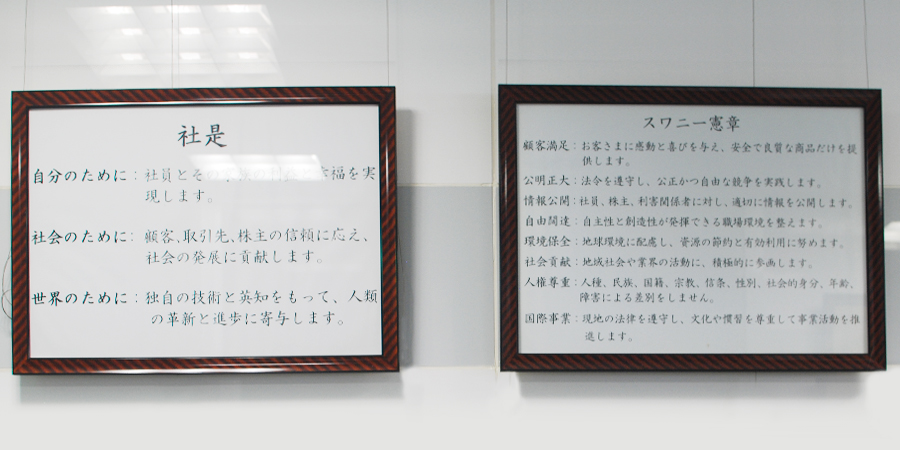 社是
自分のために：社員とその幸福を実
現します。
社会のために：顧客、取引先、株主の信頼に応え、
社会の発展に貢献します。
世界のために：独自の技術と英知をもって、人類
の革新と進歩に寄与します。
スワニー憲章
顧客満足：お客さまに感動と喜びを与え、安全で良質な商品だけを提
供します。
公明正大：法令を遵守し、公正かつ自由な競争を実践します。
情報公開：社員、株主、利害関係者に対し、適切に情報を公開します。
自由闊達：自主性と創造性が発揮できる職場環境を整えます。
環境保全：地球環境に配慮し、資源の節約と有効利用に努めます。
社会貢献：地域社会や業界の活動に、積極的に参画します。
人権尊重：人種、民族、国籍、宗教、信条、性別、社会的身分、年齢、
障害による差別をしません。
国際事業：現地の法律を遵守し、文化や慣習を尊重して事業活動を推
進します。